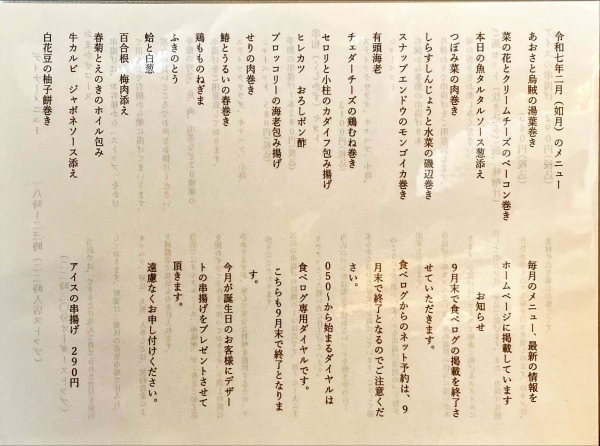 令和七年二月（如月）のメニュー
あおさと烏賊の湯葉巻き
菜の花とクリームチーズのベーコン巻き
本日の魚タルタルソース葱添え
つぼみ菜の肉巻き
しらすしんじょうと水菜の磯辺巻き
スナップエンドウのモンゴイカ巻き
有頭海老
チェダーチーズの鶏むね巻き
セロリと小柱のカダイフ包み揚げ
ヒレカツ　おろしポン酢
ブロッコリーの海老包み揚げ
せりの肉巻き
鰆とうるいの春巻き
鶏もものねぎま
ふきのとう
蛤と白葱
百合根　梅肉添え
春菊とえのきのホイル包み
牛カルビ　ジャポネソース添え
白花豆の柚子餅巻き
毎月のメニュー、最新の情報を
ホームページに掲載しています
お知らせ
９月末で食べログの掲載を終了さ
せていただきます。
食べログからのネット予約は、９
月末で終了となるのでご注意くだ
さい。
０５０〜から始まるダイヤルは
食べログ専用ダイヤルです。
こちらも９月末で終了となりま
す。
今月が誕生日のお客様にデザー
トの串揚げをプレゼントさせて
頂きます。
遠慮なくお申し付けください。
アイスの串揚げ　２９０円